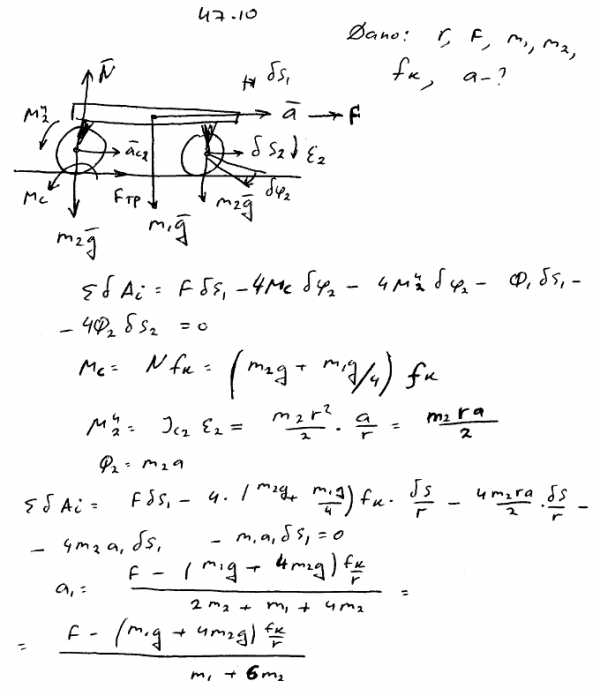 47.10
Дано: r, F, m₁, m₂,
fк, a-?
N̄
δS₁
M₂ᶤ
ā → F
ā_c₂
δS₂ ε₂
Mc
Fтр
δφ₂
m₂ḡ
m₁ḡ
m₂ḡ
ΣδAi = FδS₁ - 4Mc δφ₂ - 4M₂ᶤ δφ₂ - Φ₁ δS₁ -
- 4Φ₂ δS₂ = 0
Mc = N fк = (m₂g + m₁g/4) fк
M₂ᶤ = Jc₂ ε₂ = m₂r²/2 · a/r = m₂ra/2
Φ₂ = m₂a
ΣδAi = FδS₁ - 4·(m₂g + m₁g/4) fк · δS/r - 4m₂ra/2 · δS/r -
- 4m₂a₁ δS₁ - m₁a₁ δS₁ = 0
a₁ = (F - (m₁g + 4m₂g) fк/r) / (2m₂ + m₁ + 4m₂) =
= (F - (m₁g + 4m₂g) fк/r) / (m₁ + 6m₂)